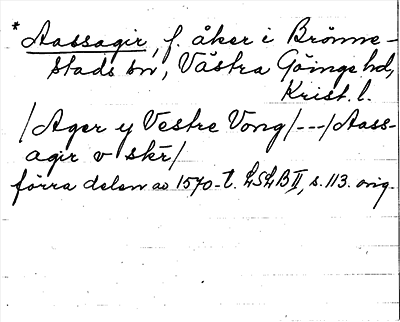 * Aassagir, f. åker i Brönne-
stads sn, Västra Göinge hd,
Krist. l.
/Ager y Vestre Vong/---/Aass-
agir v skr/
förra delen av 1570-t. LSLB II, s. 113. orig.